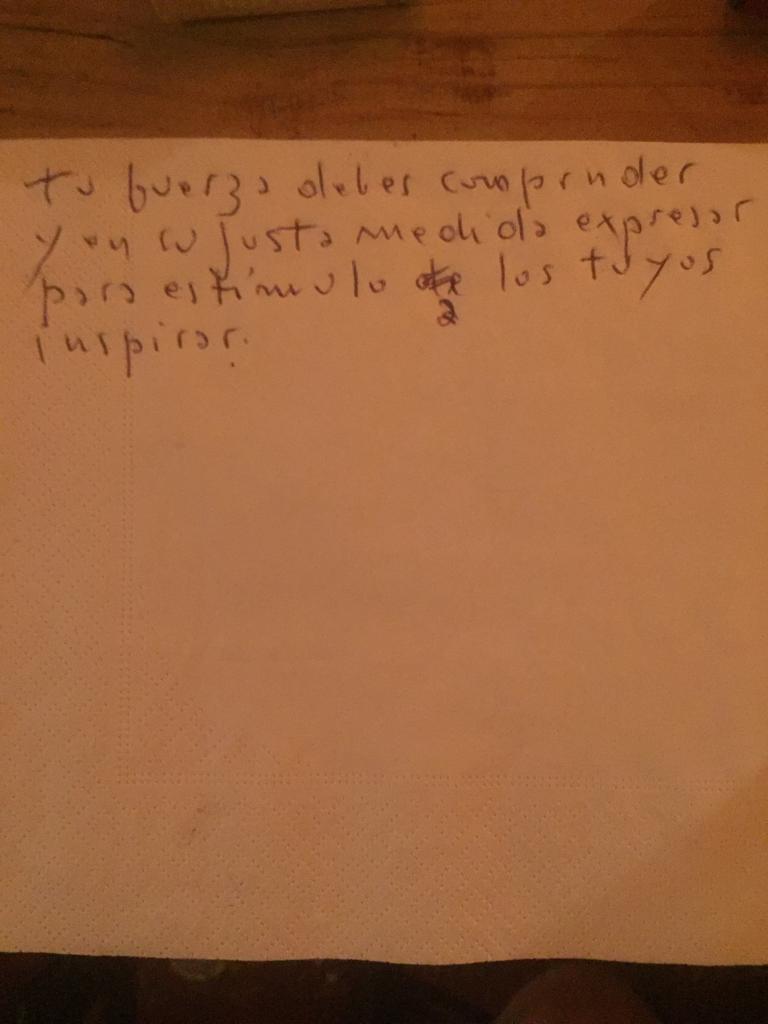 tu fuerza debes comprnder
y en su justa medida expresar
para estímulo a los tuyos
inspirar.